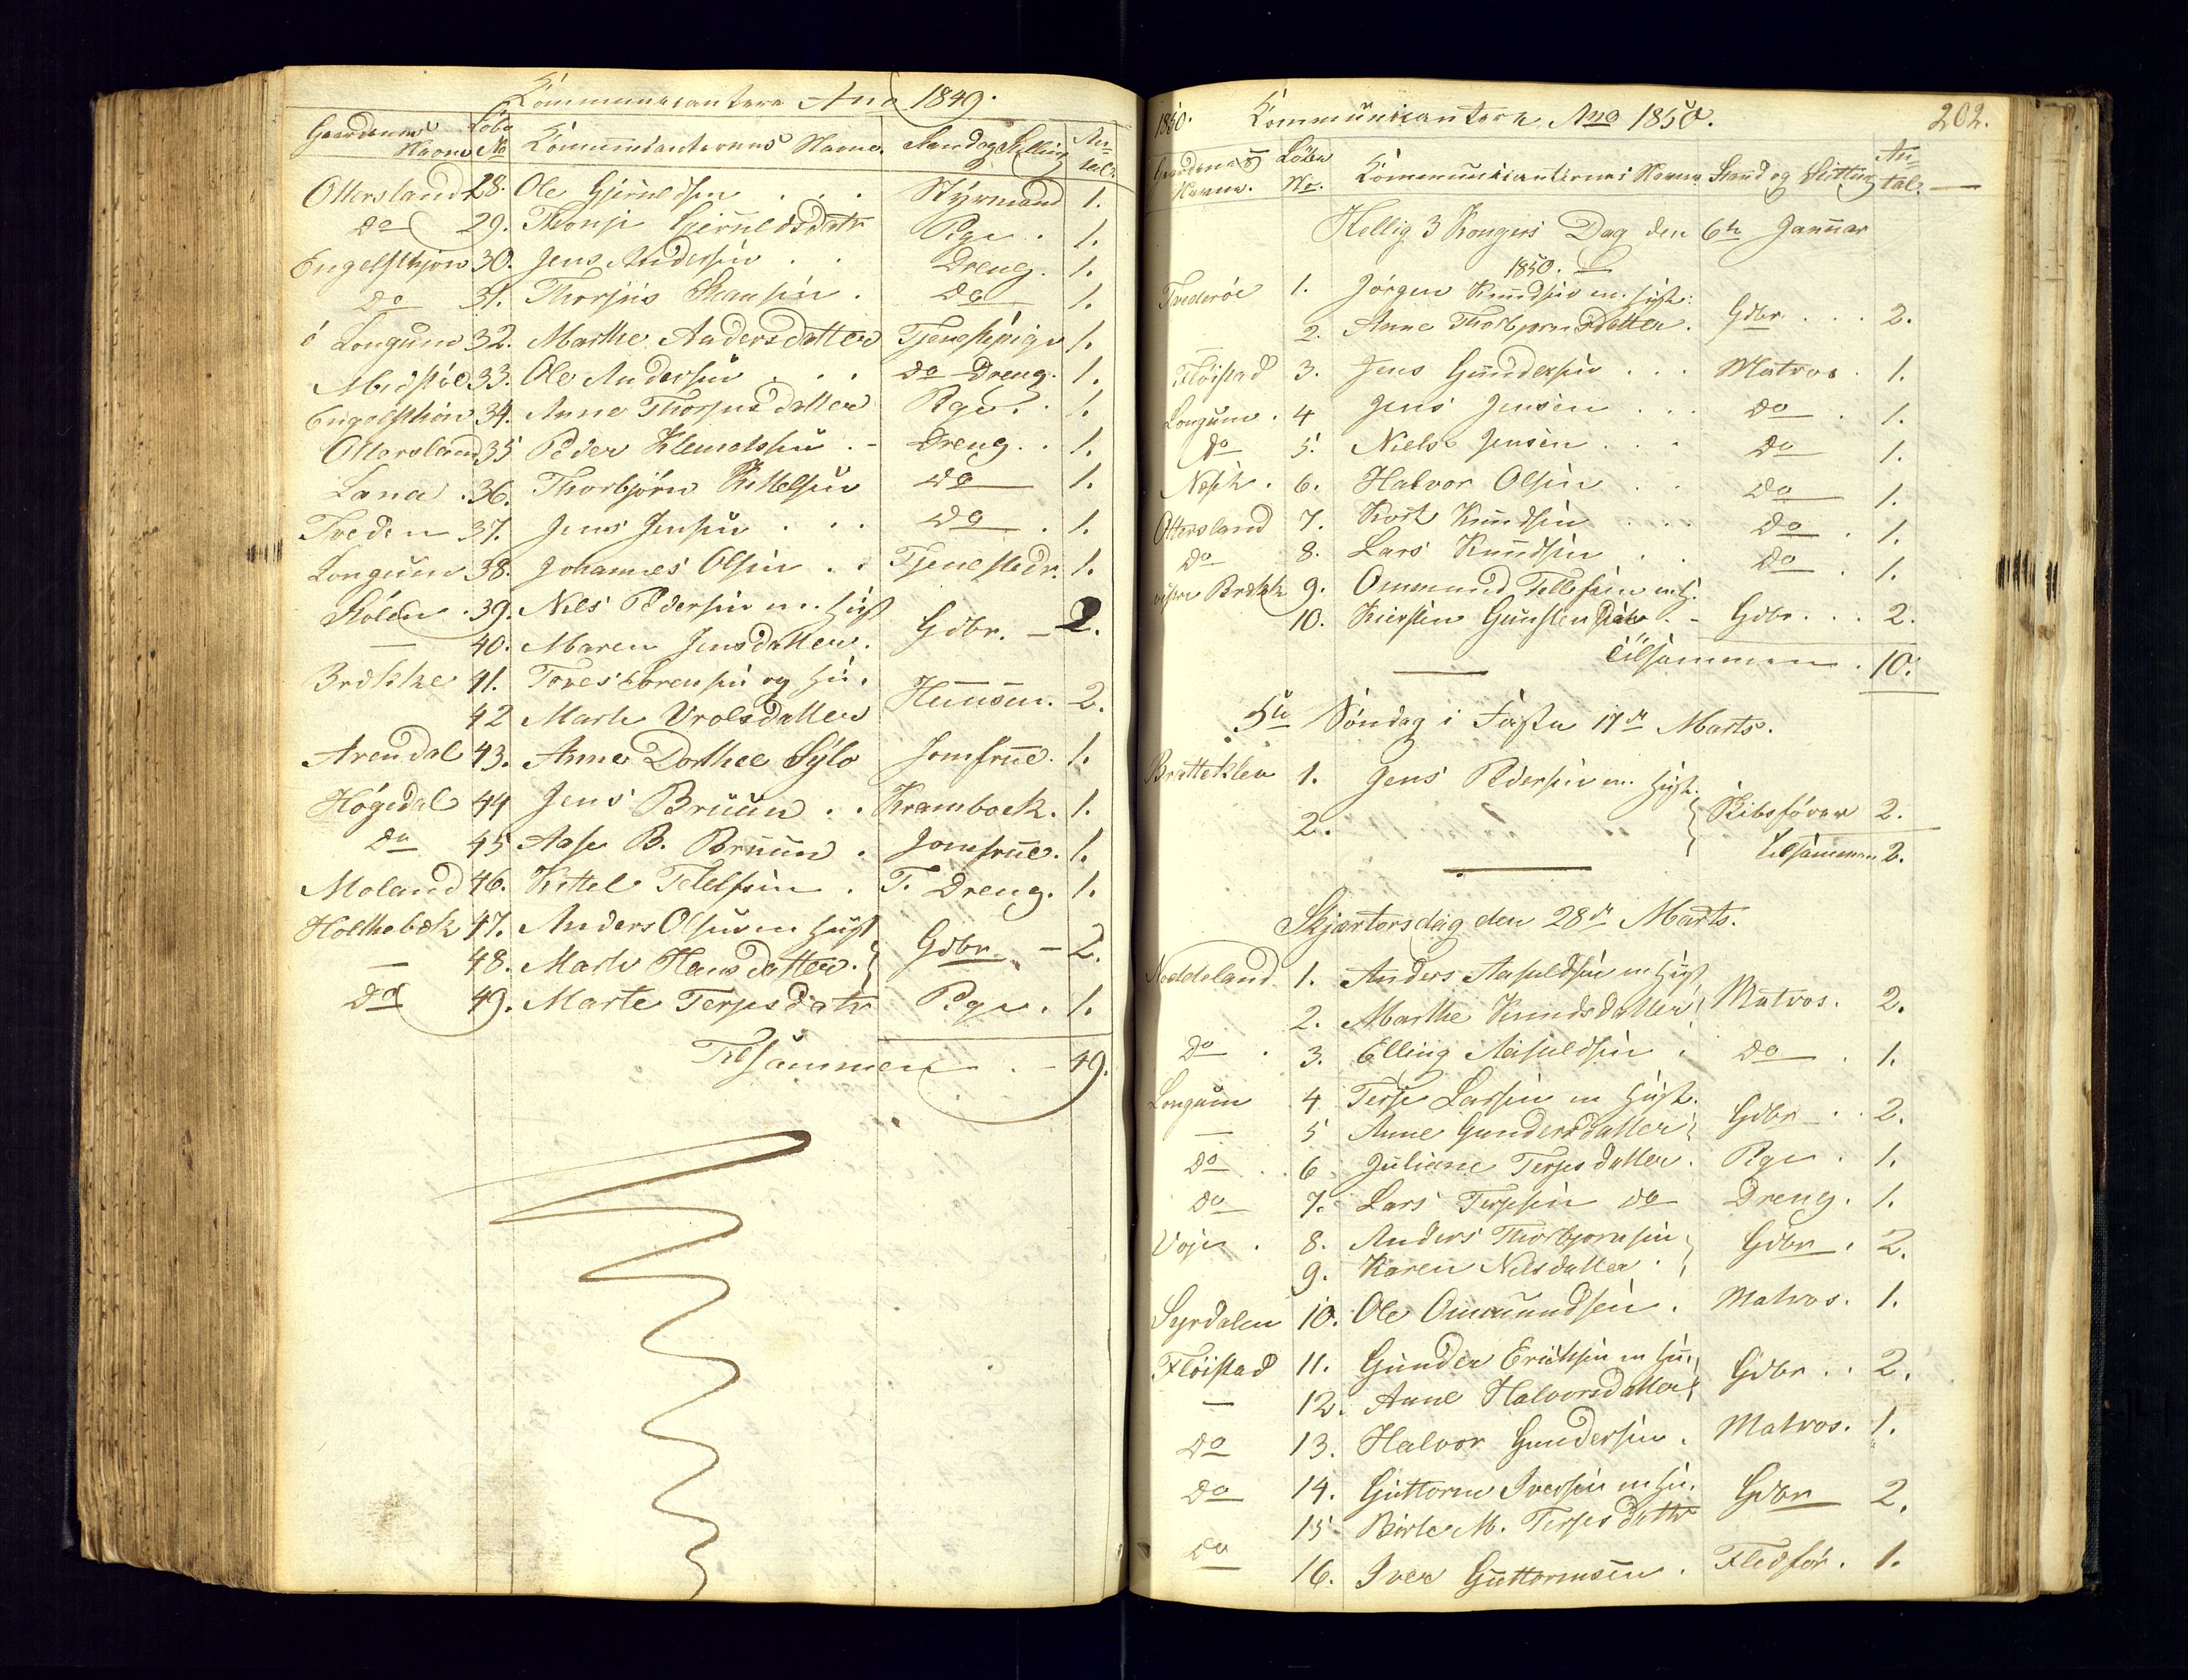 Kommunicantere Ano 1849.
Gaardenes Navne Løbe No Kommunicanternes Navne. Stand og Stilling Antal.
Ottersland 28. Ole Gjeruldsen . . . Styrmand 1.
do 29. Thonje Gjeruldsdatr Pge . 1.
Engelsthjøn 30. Jens Andersen . . Dreng. 1.
do 31. Thorjus Hansen . do 1.
Longum 32. Marthe Andersdatter Tjenestepige 1.
Midstøl 33. Ole Andersen . . . do Dreng. 1.
Engelsthion 34. Anne Thorjusdatter Pge. . 1.
Ottersland 35 Peder Klemetsen . - Dreng. . 1.
Lana . 36. Thorbjørn Kittelsen do 1.
Treden 37. Jens Jensen . . . do . 1.
Longum 38. Johannes Olsen . . Tjenestedr. 1.
Stølen . 39. Nils Pedersen m. Hust
— 40. Maren Jensdatter. Gdbr. - 2.
Brække 41. Toves Sørensen og Hu.
42 Marte Vrolsdatter Huusm. 2.
Arendal 43. Anne Dorthee Sylo Jomfrue. 1.
Høgedal 44 Jens Bruun . . Krambock. 1.
do 45 Aase B. Bruun . Jomfrue. 1.
Moland 46. Kittel Tellefsen . T. Dreng. 1.
Holthebæk 47. Anders Olsen m Hust
— 48. Marte Hansdatter. Gdbr. - 2.
do 49. Marte Terjesdatr Pge . 1.
Tilsammen . - 49.
1850. Kommunicantere Ano 1850. 202.
Gaardenes Navne. Løbe No. Kommunicanternes Navne Stand og Stilling Antal. —
Hellig 3 Kongers Dag den 6te Januar
1850.
Trederøe 1. Jørgen Knudsen m. Hust:
2. Anne Thorbjørnsdatter. Gdbr . . . 2.
Fløistad 3. Jens Gundersen . . . Matros . 1.
Longum . 4 Jens Jensen . . . do . 1.
do 5. Niels Jensen . . . do 1.
Næsk . 6. Halvor Olsen . . do 1.
Ottersland 7. Kort Knudsen . . . do . 1.
do 8. Lars Knudsen . . do . 1.
vestre Brække 9. Ommund Tellefsen m H.
10. Kirsten Gunstensdatr . - Gdbr. . . 2.
Tilsammen . 10.
5te Søndag i Faste 17de Marts.
Bratteklev 1. Jens Pedersen m. Hust.
2. Skibsfører 2.
Tilsammen 2.
Skjærtorsdag den 28de Marts.
Neddeland 1. Anders Aasuldsen m Hust
2. Marthe Knudsdatter Matros. 2.
do . 3. Elling Aasuldsen . do . 1.
Longum 4 Terje Larsen m Hust.
— 5 Anne Gundersdatter Gdbr . . 2.
do . . 6 Juliane Terjesdatter. Pge . 1.
do 7. Lars Terjesen do Dreng. 1.
Voje . 8. Anders Thorbjørnsen
9. Karen Nilsdatter . Gdbr . 2.
Syrdalen 10. Ole Ommundsen . Matros. 1.
Fløistad 11. Gunder Erichsen m Hu.
— 12. Anne Halvorsdatter Gdbr . . 2.
do 13. Halvor Gundersen . Matros. 1.
do 14. Guttorm Iversen m Hu.
15 Birte M. Terjesdattr Gdbr 2.
do 16. Iver Guttormsen . Fledfør. 1.